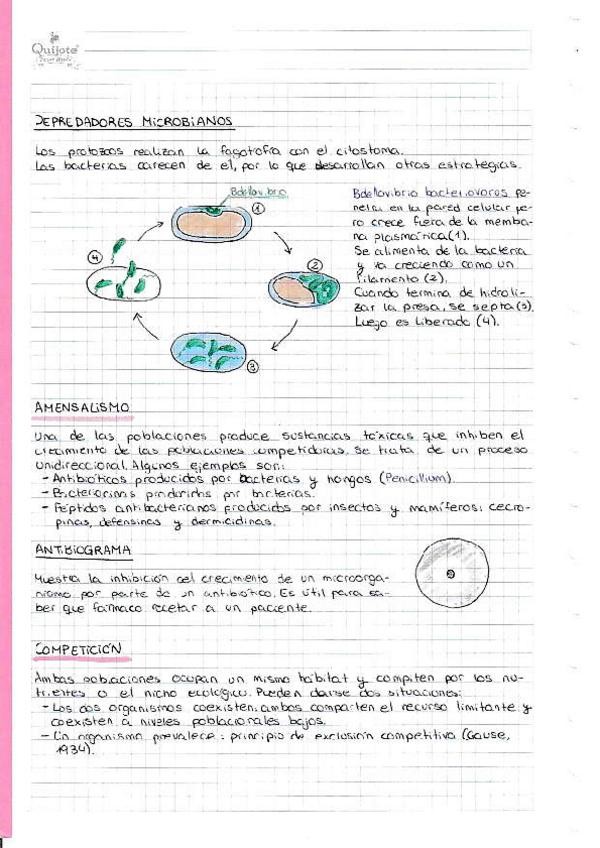 Quijote
DEPREDADORES MICROBIANOS
Los protozoos realizan la fagotrofia con el citostoma.
Las bacterias carecen de el, por lo que desarrollan otras estrategias.
Bdellovibrio
1
2
3
4
Bdellovibrio bacteriovorus pe-
netra en la pared celular pe-
ro crece fuera de la memba-
na plasmática (1).
Se alimenta de la bacteria
y va creciendo como un
filamento (2).
Cuando termina de hidroli-
zar la presa, se septa (3).
Luego es liberado (4).
AMENSALISMO
Una de las poblaciones produce sustancias tóxicas que inhiben el
crecimiento de las poblaciones competidoras. Se trata de un proceso
unidireccional. Algunos ejemplos son:
- Antibióticos producidos por bacterias y hongos (Penicillium).
- Bacteriocinas producidas por bacterias.
- Péptidos antibacterianos producidos por insectos y mamíferos: cecro-
pinas, defensinas y dermicidinas.
ANTIBIOGRAMA
Muestra la inhibición del crecimiento de un microorga-
nismo por parte de un antibiótico. Es útil para sa-
ber que fármaco recetar a un paciente.
COMPETICIÓN
Ambas poblaciones ocupan un mismo hábitat y compiten por los nu-
trientes o el nicho ecológico. Pueden darse dos situaciones:
- Los dos organismos coexisten: ambos comparten el recurso limitante y
coexisten a niveles poblacionales bajos.
- Un organismo prevalece: principio de exclusión competitiva (Gause,
1934).